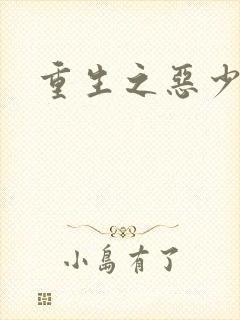 重生之惡少
小島有了